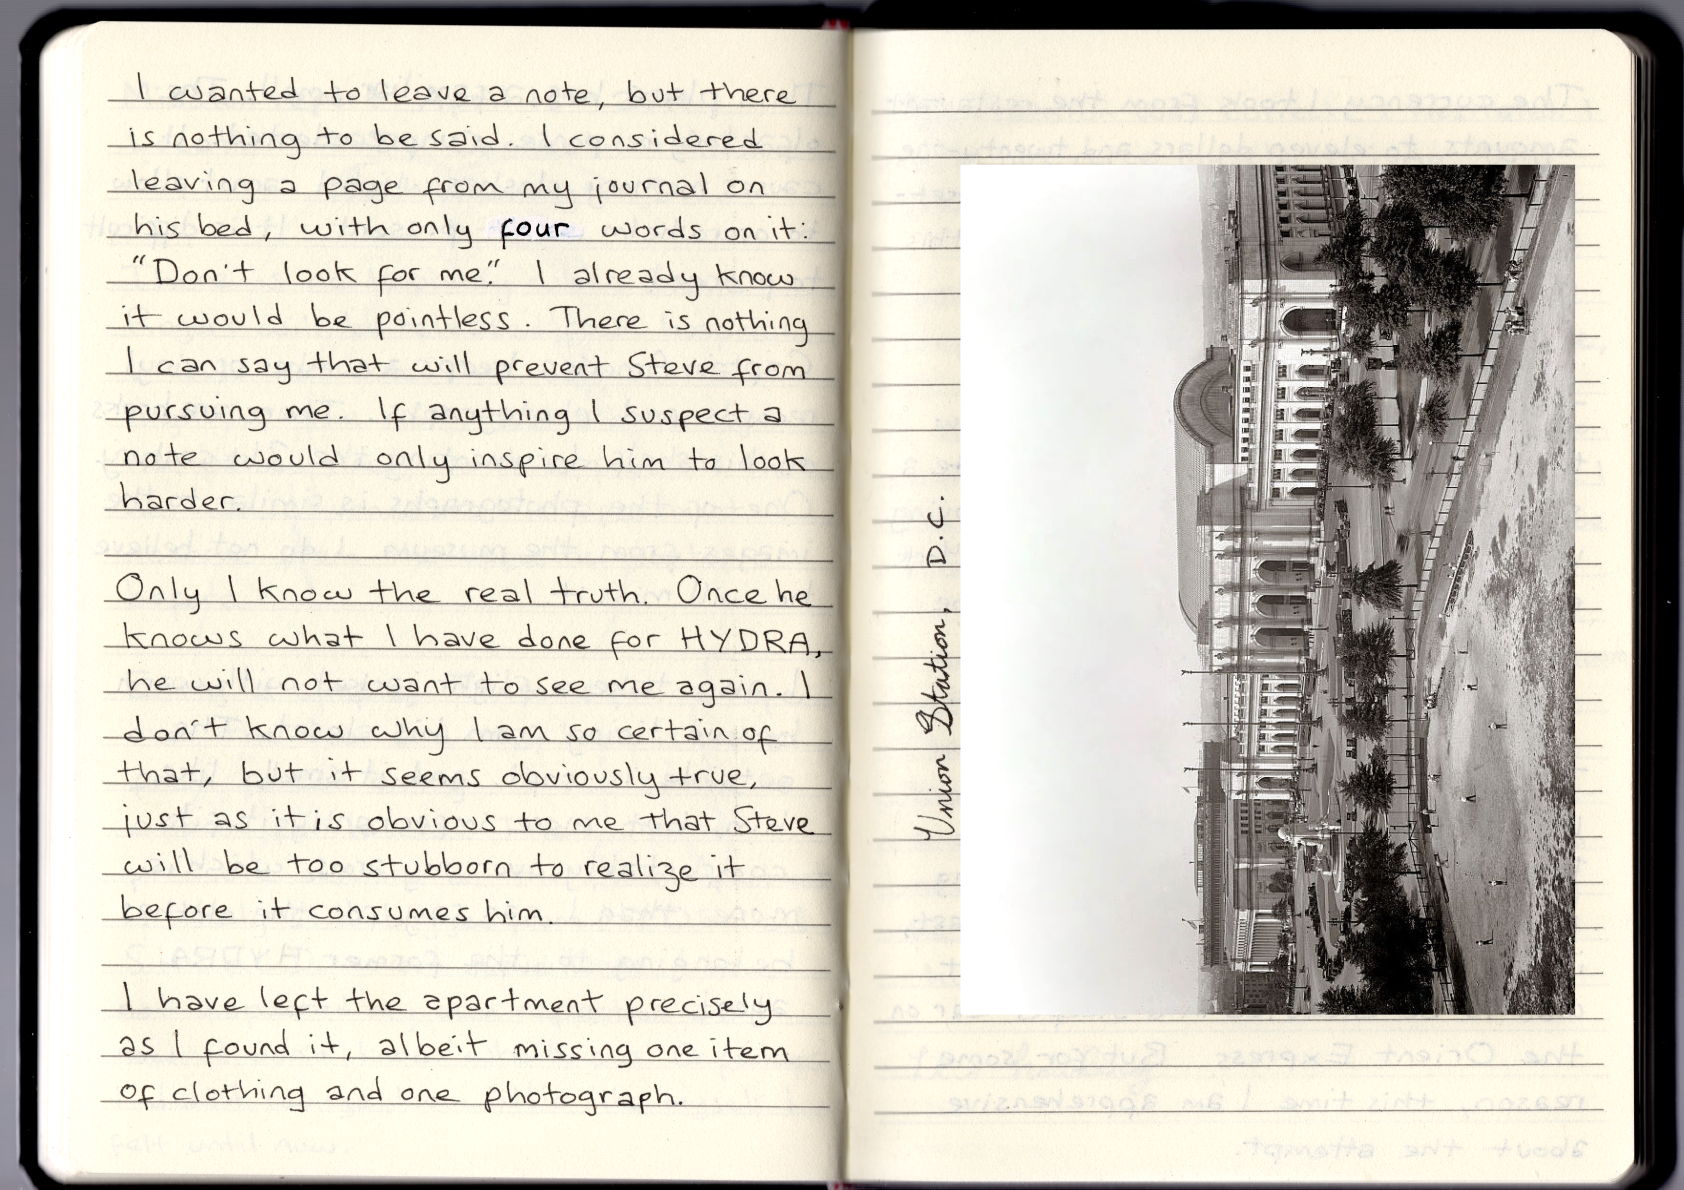 I wanted to leave a note, but there
is nothing to be said. I considered
leaving a page from my journal on
his bed, with only four words on it:
"Don't look for me." I already know
it would be pointless. There is nothing
I can say that will prevent Steve from
pursuing me. If anything I suspect a
note would only inspire him to look
harder.
Only I know the real truth. Once he
knows what I have done for HYDRA,
he will not want to see me again. I
don't know why I am so certain of
that, but it seems obviously true,
just as it is obvious to me that Steve
will be too stubborn to realize it
before it consumes him.
I have left the apartment precisely
as I found it, albeit missing one item
of clothing and one photograph.
Union Station, D.C.